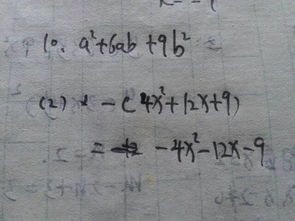 10. a²+6ab+9b²
(2) -(4x²+12x+9)
= -4x²-12x-9